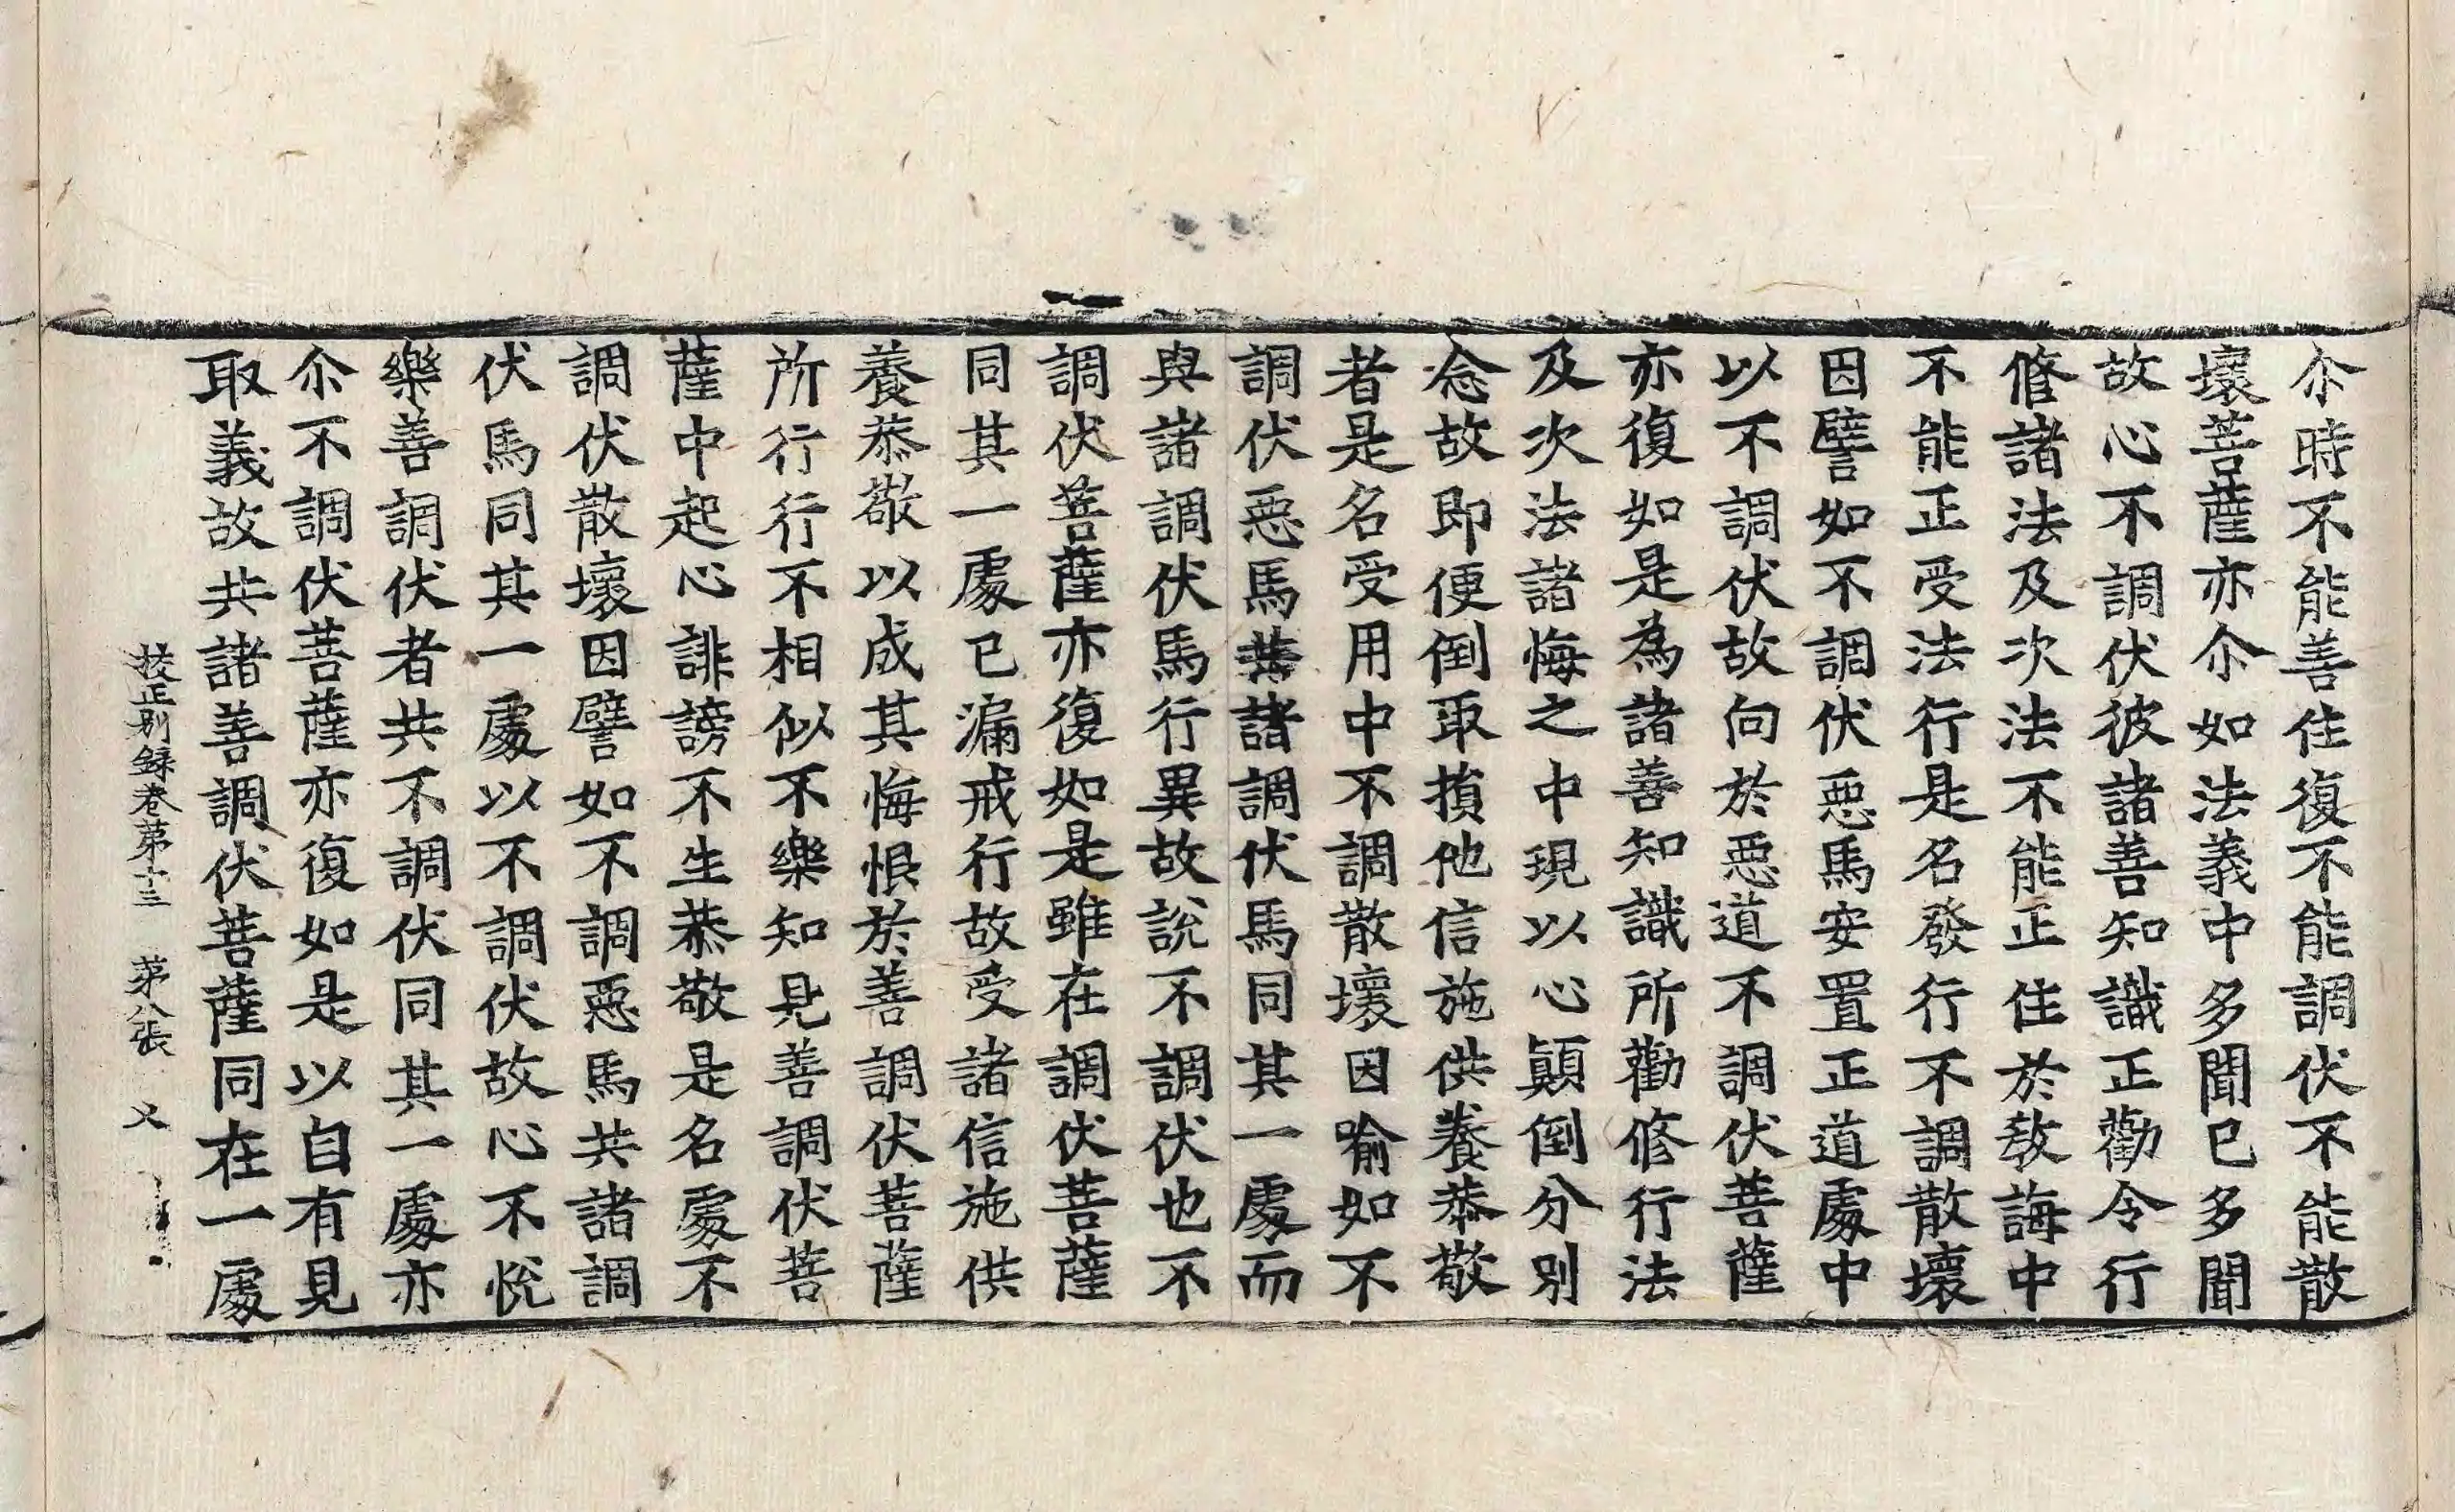 尒時不能善住復不能調伏不能散
壞菩薩亦尒如法義中多聞已多聞
故心不調伏彼諸善知識正勸令行
修諸法及次法不能正住於教誨中
不能正受法行是名發行不調散壞
因譬如不調伏惡馬安置正道處中
以不調伏故向於惡道不調伏菩薩
亦復如是為諸善知識所勸修行法
及次法諸悔之中現以心顛倒分別
念故即便倒取損他信施供養恭敬
者是名受用中不調散壞因喻如不
調伏惡馬共諸調伏馬同其一處而
與諸調伏馬行異故說不調伏也不
調伏菩薩亦復如是雖在調伏菩薩
同其一處已漏戒行故受諸信施供
養恭敬以成其悔恨於善調伏菩薩
所行行不相似不樂知見善調伏菩
薩中起心誹謗不生恭敬是名處不
調伏散壞因譬如不調惡馬共諸調
伏馬同其一處以不調伏故心不悅
樂善調伏者共不調伏同其一處亦
尒不調伏菩薩亦復如是以自有見
取義故共諸善調伏菩薩同在一處
挍正別録卷第十三 第八張